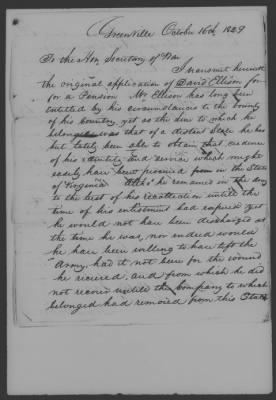 Greenville October 16th 1829
To the Hon. Secretary of War
I transmit herewith
the original application of David Ellison for
for a Pension Mr Ellison has long been
entitled by his circumstances to the bounty
of his Country, yet as the line to which he
belonged was that of a distant State he has
but lately been able to obtain that evidence
of his identity and service which might
easily have been procured from in the State
of Virginia he remained in the Army
to the best of his recollection untill the
time of his enlistment had expired yet
he would not have been discharged at
the time he was, nor indeed would
he have been willing to have left the
Army, had it not been for the wound
he received, and from which he did
not recover untill the company to which
belonged had removed from this State